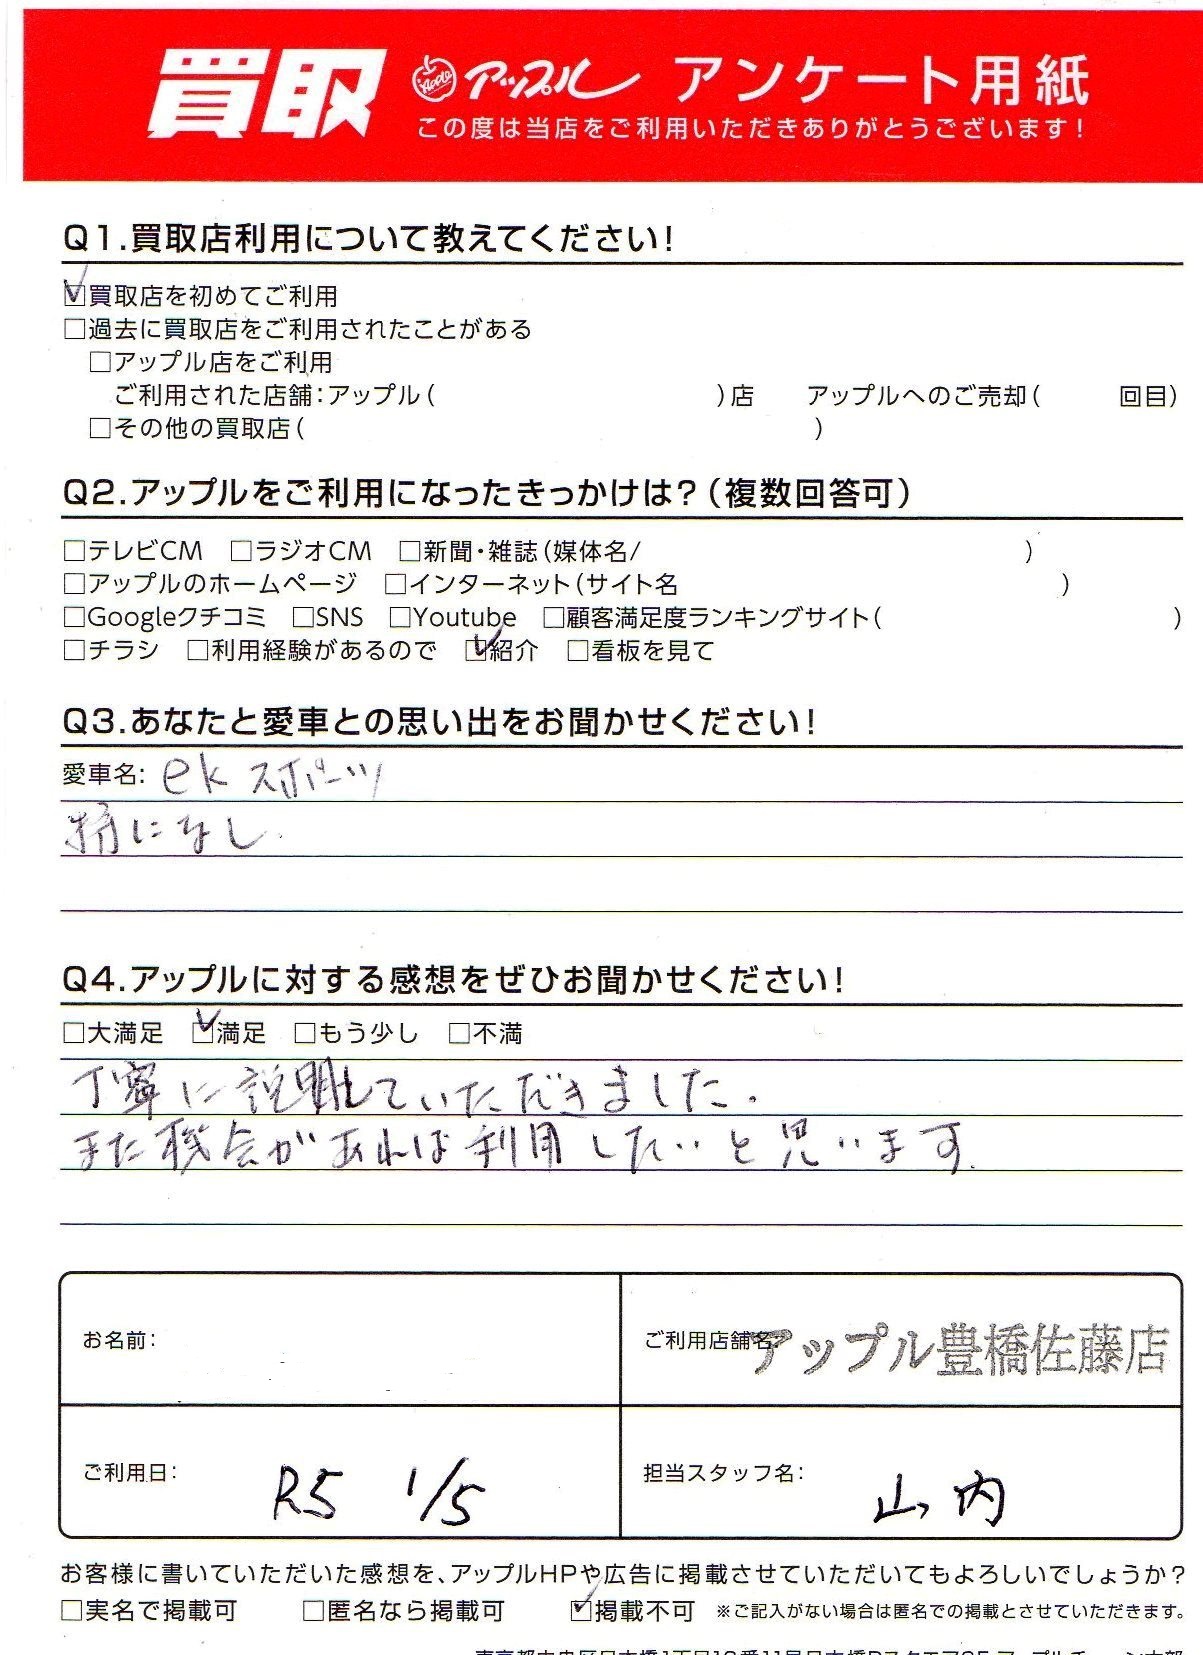 買取 Apple アップル アンケート用紙
この度は当店をご利用いただきありがとうございます!
Q1.買取店利用について教えてください!
☑買取店を初めてご利用
□過去に買取店をご利用されたことがある
□アップル店をご利用
ご利用された店舗:アップル( )店 アップルへのご売却( 回目)
□その他の買取店( )
Q2.アップルをご利用になったきっかけは?(複数回答可)
□テレビCM □ラジオCM □新聞・雑誌(媒体名/ )
□アップルのホームページ □インターネット(サイト名 )
□Googleクチコミ □SNS □Youtube □顧客満足度ランキングサイト( )
□チラシ □利用経験があるので ☑紹介 □看板を見て
Q3.あなたと愛車との思い出をお聞かせください!
愛車名: ek スポーツ
特になし.
Q4.アップルに対する感想をぜひお聞かせください!
□大満足 ☑満足 □もう少し □不満
丁寧に説明していただきました.
また機会があれば利用したいと思います.
お名前:
ご利用店舗名: アップル豊橋佐藤店
ご利用日: R5 1/5
担当スタッフ名: 山内
お客様に書いていただいた感想を、アップルHPや広告に掲載させていただいてもよろしいでしょうか?
□実名で掲載可 □匿名なら掲載可 ☑掲載不可 ※ご記入がない場合は匿名での掲載とさせていただきます。